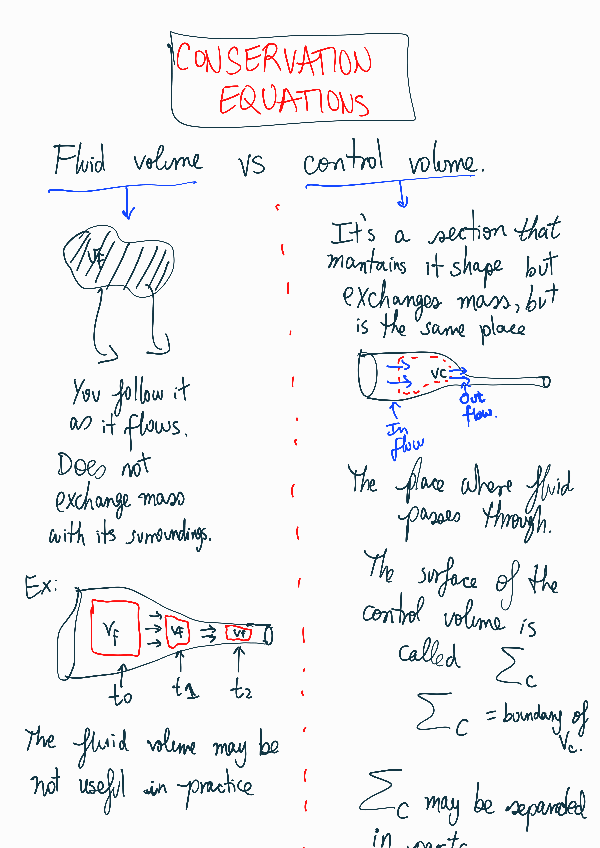 CONSERVATION
EQUATIONS
Fluid volume vs control volume.
Vf
You follow it
as it flows.
Does not
exchange mass
with its surroundings.
Ex:
Vf
Vf
Vf
t0
t1
t2
The fluid volume may be
not useful in practice
It's a section that
mantains it shape but
exchanges mass, but
is the same place
Vc
In
flow
Out
flow.
The place where fluid
passes through.
The surface of the
control volume is
called Σc
Σc = boundary of
Vc.
Σc may be separded
in parts